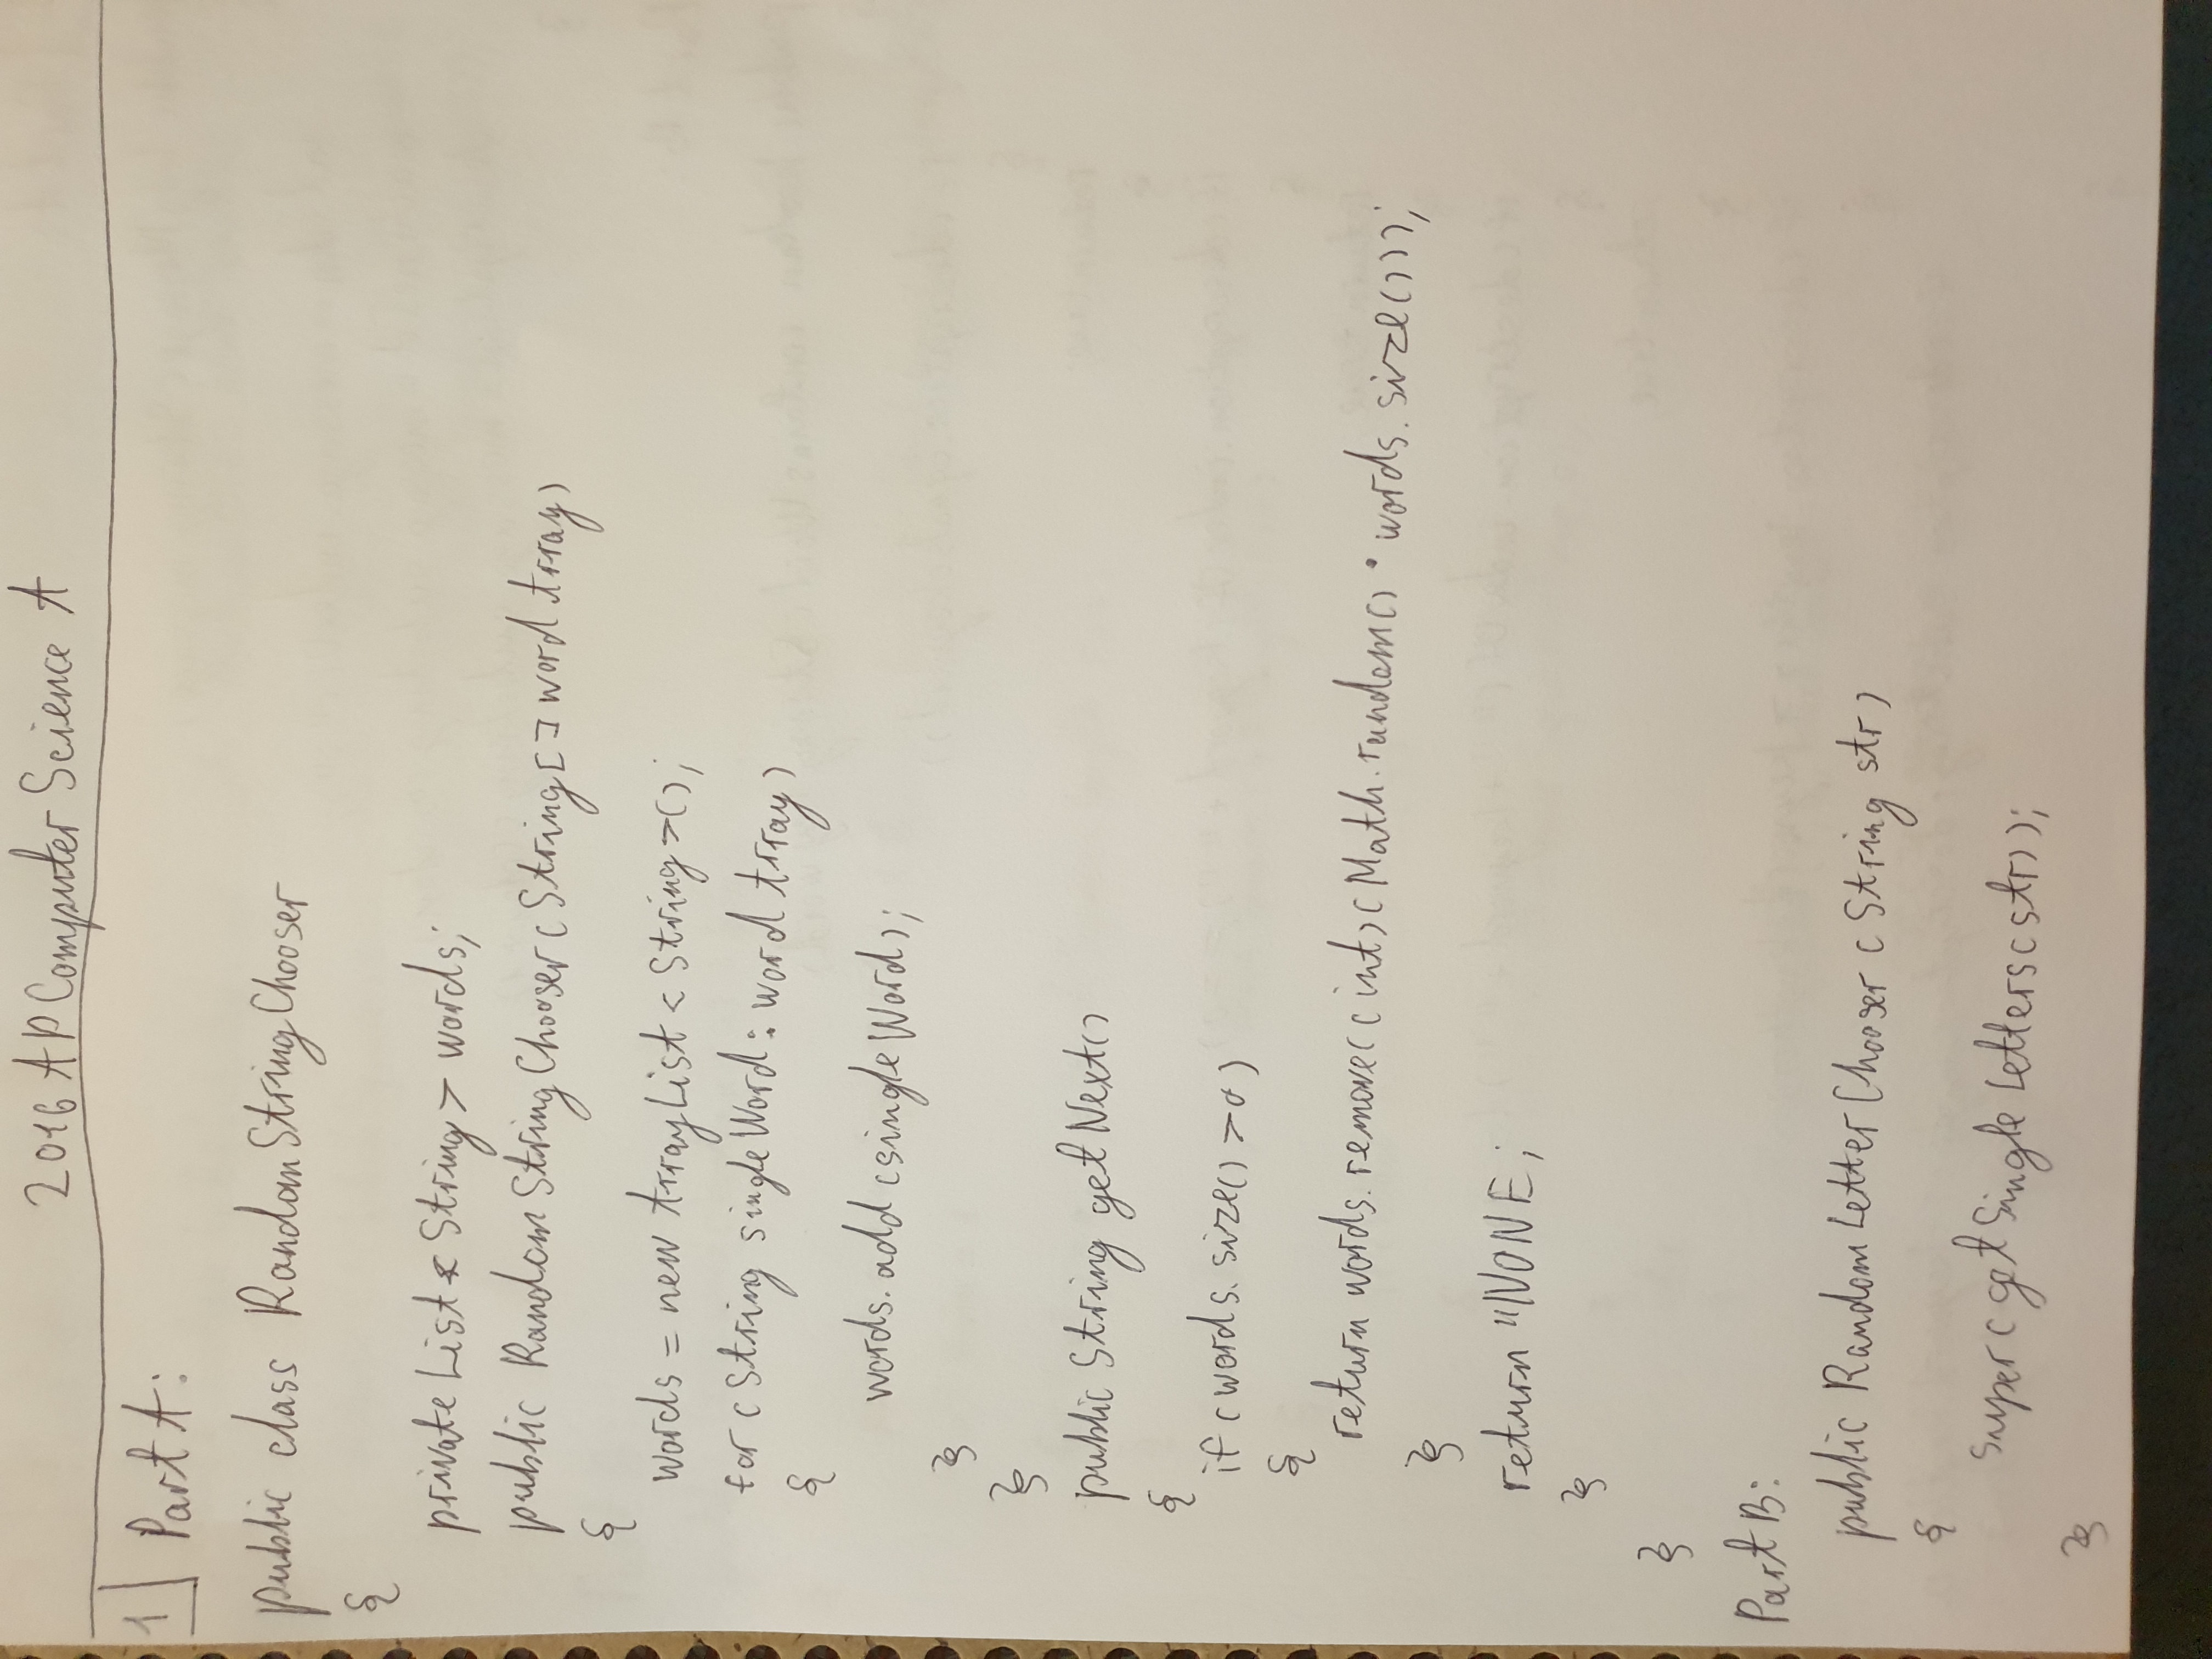 2016 AP Computer Science A
1 Part A:
public class RandomStringChooser
{
private List < String > words;
public RandomStringChooser (String[] wordArray)
{
words = new ArrayList < String >();
for (String singleWord : wordArray)
{
words.add (singleWord);
}
}
public String getNext()
{
if (words.size() > 0)
{
return words.remove((int)(Math.random() * words.size()));
}
return "NONE;
}
}
Part B:
public RandomLetterChooser (String str)
{
super (getSingleLetters(str));
}